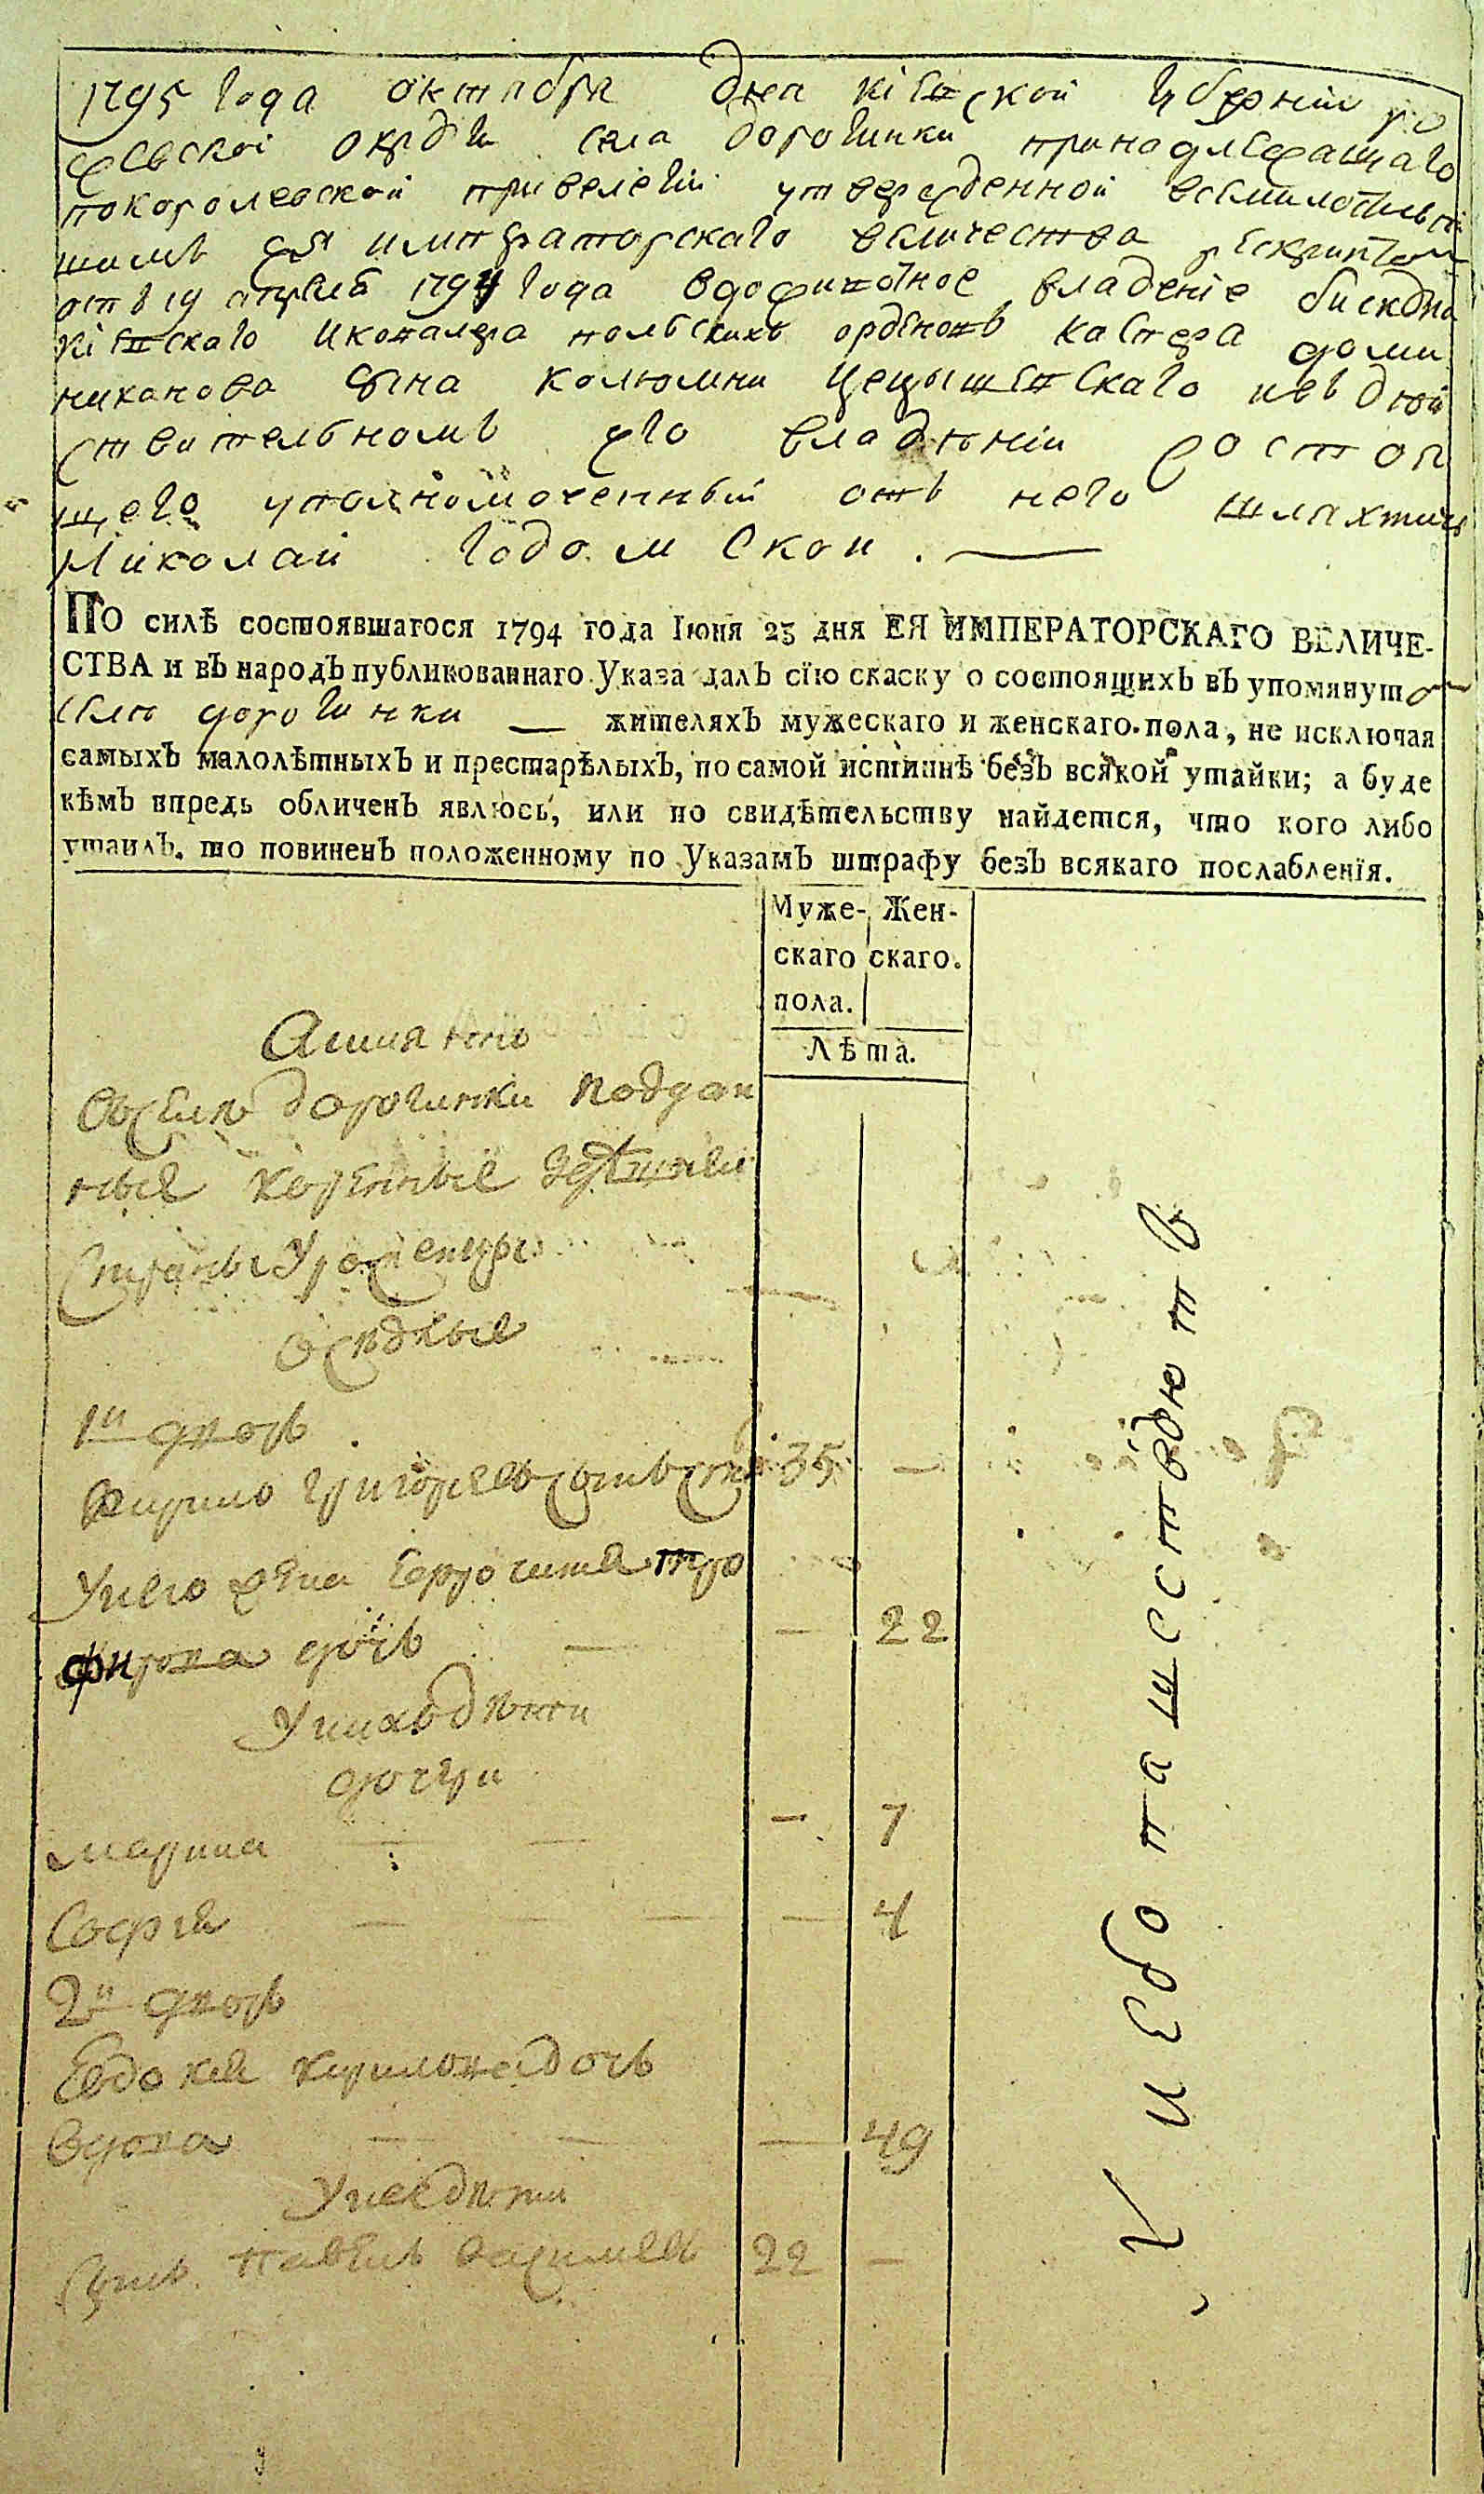 1795 года октября дня кіевской губерніи ро
жевской округи села дорогинки принадлежащаго
покоролевской привелегіи утвержденной всемилостивей
шимъ ея императорскаго величества рескриптом
отъ 19 апреля 1794 года вдоживотное владеніе бискупа
кіевскаго икавалера полскихъ орденовъ каспера доми
никанова сына колюмни цецышевскаго ивъ дей
ствительномъ его владѣніи состоя
щего уполномоченный отъ него шляхтичъ
Николай Годомскои. —
ПО силѣ состоявшагося 1794 года Іюня 23 дня ЕЯ ИМПЕРАТОРСКАГО ВЕЛИЧЕ-
СТВА и въ народъ публикованнаго Указа далъ сїю скаску о состоящихъ въ упомянутом
селѣ дорогинки — жителяхъ мужескаго и женскаго пола, не исключая
самыхъ малолѣтныхъ и престарѣлыхъ, по самой истиннѣ безъ всякой утайки; а буде
кѣмъ впредь обличенъ явлюсь, или по свидѣтельству найдется, что кого либо
утаилъ, то повиненъ положенному по Указамъ штрафу безъ всякаго послабленїя.
Муже- Жен-
скаго скаго.
пола.
Лѣта.
Амянно
Въ селѣ дорогинки поддан
ные коренные здешней
страны уроженцы
оседлые
1й дворъ
Кирило григорьевъ сынъ 35 —
Унего жена Евфросиния тро
фимова дочь — — 22
Унихъ дѣти
дочери
марина — — — 7
София — — — — 4
2й дворъ
Евдокия кирилова дочь
вдова — — — 49
Унее дѣти
сынъ павелъ 22 —
Киевопашествуютъ